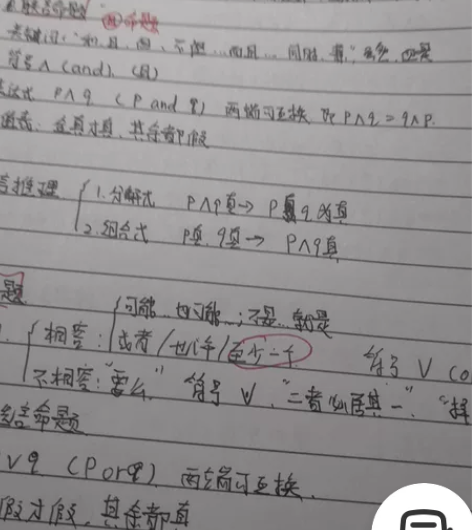 联言命题 且命题
关键词:“和、且、而、不但…而且…同时、虽,
符号∧(and)(且)
达式 P∧q (P and q) 两端可互换 即P∧q=q∧P.
全真才真,其余都假
言推理 1.分解式 P∧q真→P真q为真
2.组合式 P真,q真→P∧q真
题 可能…也可能…;不是…就是
相容:或者/也许/至少一个 符号∨(o
不相容:“要么” 符号∨.“二者必居其一”.“择
言命题
∨q (P or q) 两端可互换.
假才假,其余都真